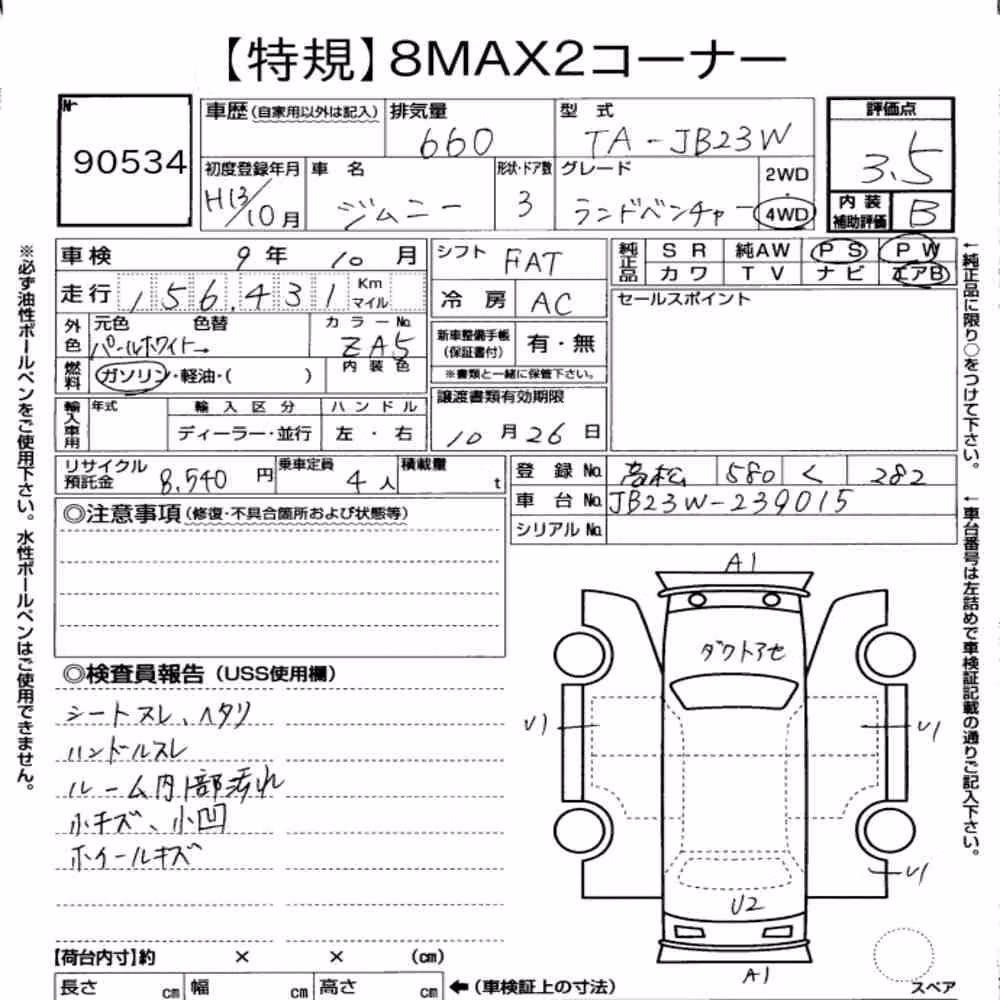 【特規】8MAX2コーナー
№ 90534
車歴(自家用以外は記入) 排気量 660 型 式 TA-JB23W 評価点 3.5
初度登録年月 H13/10月 車 名 ジムニー 形状・ドア数 3 グレード ランドベンチャー 2WD・4WD 内装補助評価 B
車検 9年 10月 シフト FAT 純正品 SR 純AW PS PW
カワ TV ナビ エアB
走行 156,431 Km マイル 冷房 AC セールスポイント
外色 元色 パールホワイト→ 色替 カラーNo. ZA5 新車整備手帳(保証書付) 有・無
燃料 ガソリン・軽油・( ) 内装色 ※書類と一緒に保管下さい。
輸入車用 年式 輸入区分 ハンドル 譲渡書類有効期限
ディーラー・並行 左・右 10月26日
リサイクル預託金 8,540円 乗車定員 4人 積載量 t 登録No. 高松 580 く 282
車台No. JB23W-239015
シリアルNo.
◎注意事項(修復・不具合箇所および状態等)
◎検査員報告(USS使用欄)
シートスレ、ヘタリ
ハンドルスレ
ルーム内1部汚れ
小キズ、小凹
ホイールキズ
A1
ダクトアセ
U1
U1
U1
U2
A1
スペア
【荷台内寸】約 × × (cm)
長さ cm 幅 cm 高さ cm ←(車検証上の寸法)
※必ず油性ボールペンをご使用下さい。水性ボールペンはご使用できません。
←純正品に限り○をつけて下さい。
←車台番号は左詰めで車検証記載の通りご記入下さい。